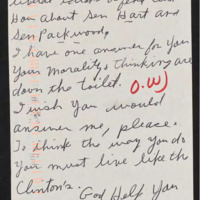 How about Sen Hart and
Sen Packwood,
I have one answer for you
Your Morality & thinking are
down the toilet. O.W)
I wish you would
answer me, please.
To think the way you do
you must live like the
Clinton's.
God Help You